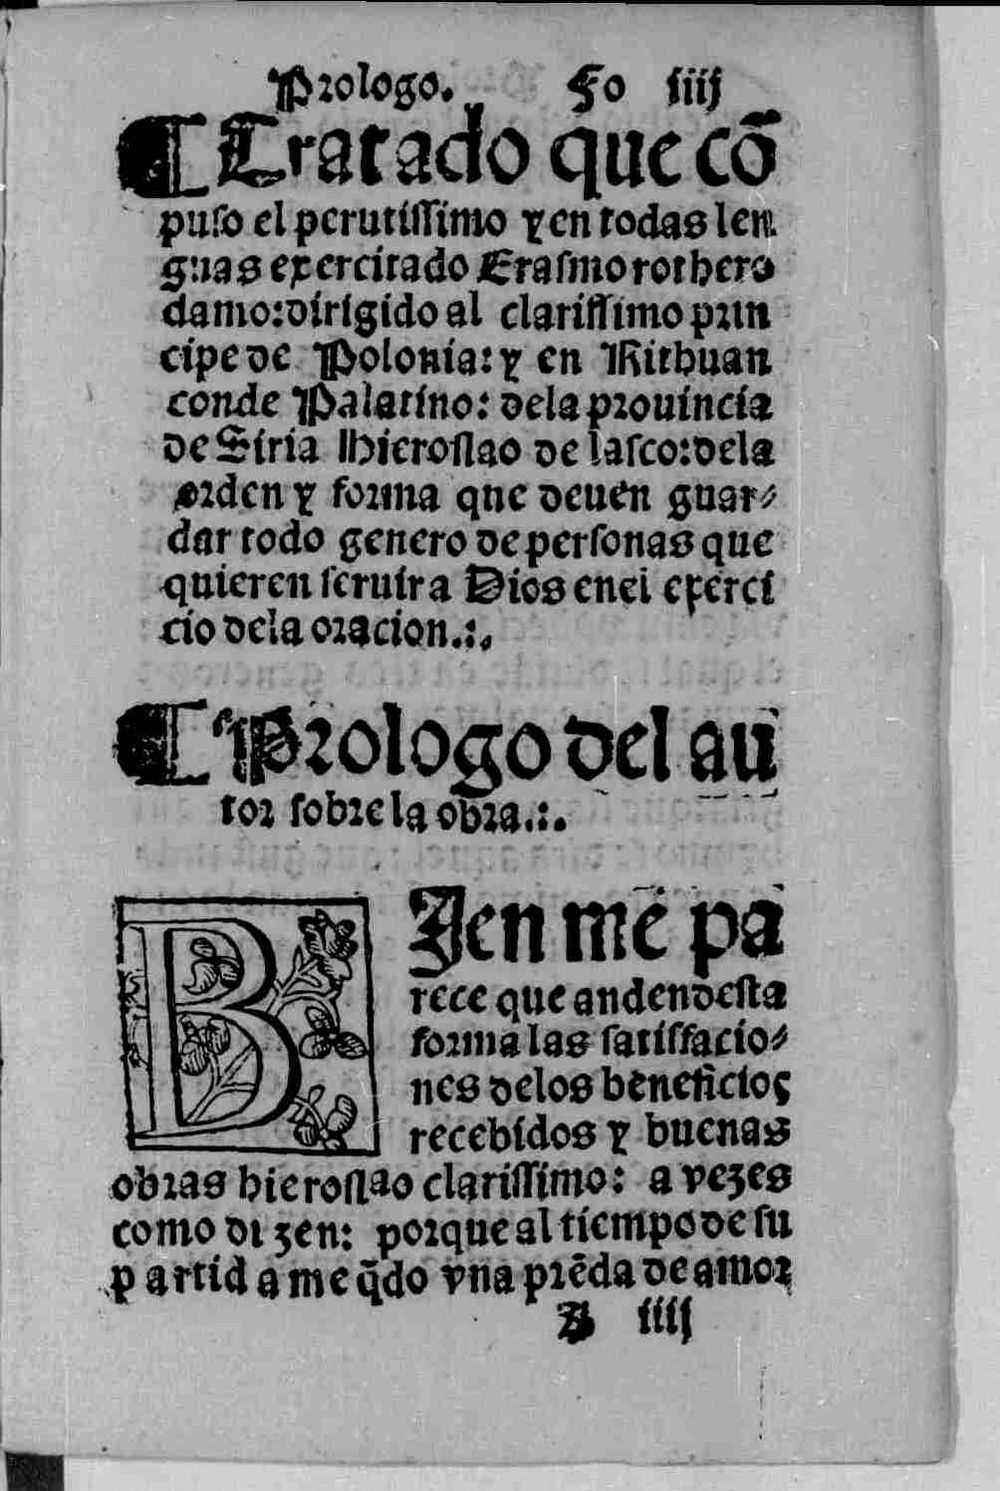 Prologo. Fo iiij
¶ Tratado que cō
puso el perutissimo y en todas len
guas exercitado Erasmo rothero
damo: dirigido al clarissimo prin
cipe de Polonia: y en Rithuan
conde Palatino: dela prouincia
de Siria Hieroslao de lasco: dela
orden y forma que deuen guar-
dar todo genero de personas que
quieren seruir a Dios enel exerci
cio dela oracion.:.
¶ Prologo del au
tor sobre la obra.:.
BIen me pa
rece que anden desta
forma las satisfacio-
nes delos beneficios
recebidos y buenas
obras hieroslao clarissimo: a vezes
como dizen: porque al tiempo de su
partida me q̄do vna prēda de amor
A iiij